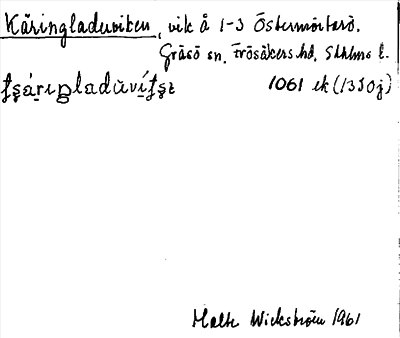 Käringladuviken, vik å 1-3 Östermörtarö.
Gräsö sn. Frösåkers hd, Sthlms l.
1061 ek (13 I 0j)
Malte Wickström 1961